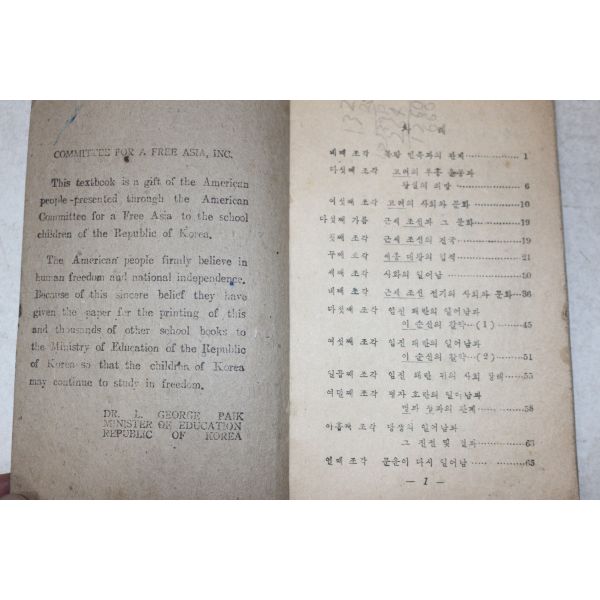 COMMITTEE FOR A FREE ASIA, INC.
This textbook is a gift of the American
people-presented through the American
Committee for a Free Asia to the school
children of the Republic of Korea.
The American people firmly believe in
human freedom and national independence.
Because of this sincere belief they have
given the paper for the printing of this
and thousands of other school books to
the Ministry of Education of the Republic
of Korea so that the children of Korea
may continue to study in freedom.
DR. L. GEORGE PAIK
MINISTER OF EDUCATION
REPUBLIC OF KOREA
차 례
네째 조각 북방 민족과의 관계 1
다섯째 조각 고려의 부흥 운동과
왕실의 6
여섯째 조각 고려의 사회와 문화 10
다섯째 가름 근세 조선과 그 문화 19
첫째 조각 근세 조선의 건국 19
두째 조각 세종 대왕의 업적 21
세째 조각 사화의 일어남 30
네째 조각 근세 조선 전기의 사회와 문화 36
다섯째 조각 임진 왜란의 일어남과
이 순신의 활약 (1) 45
여섯째 조각 임진 왜란의 일어남과
이 순신의 활약 (2) 51
일곱째 조각 임진 왜란 뒤의 사회 55
여덟째 조각 병자 호란의 일어남과
관계 58
아홉째 조각 당쟁의 일어남과
그 및 결과 63
열째 조각 문운이 다시 일어남 65
— 1 —